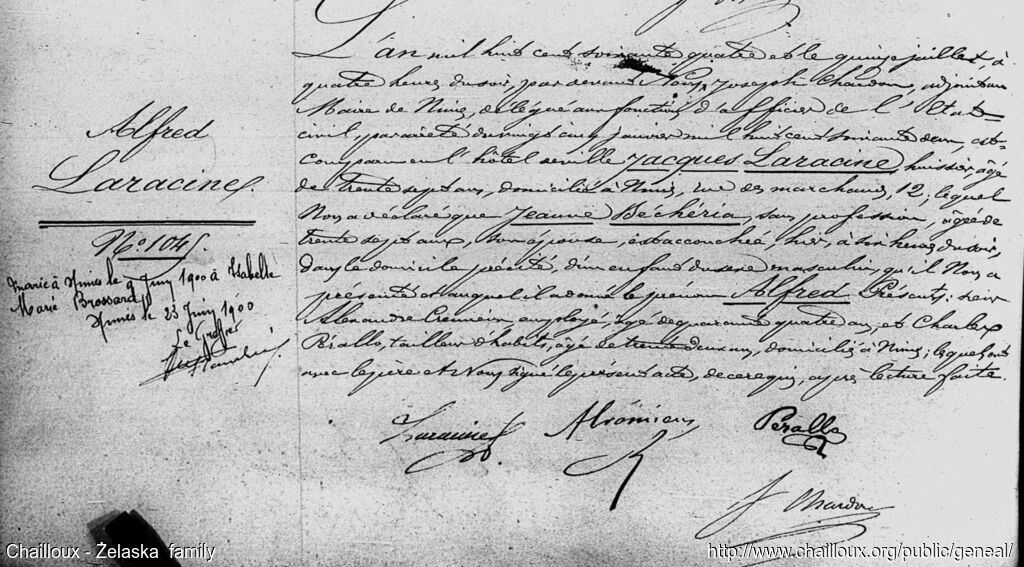 Alfred
Laracine.
N° 1045
Marié à Nimes le 9 Juin 1900 à Isabelle
Marie Brossard
Nimes le 23 Juin 1900
Le Greffier
L'An mil huit cent soixante quatre et le quinze juillet à
quatre heures du soir, par devant Nous, Joseph Chardon, adjoint au
Maire de Nimes, délégué aux fonctions d'officier de l'Etat-
civil, par arrêté du vingt cinq janvier mil huit cent soixante deux, est
comparu en l'hôtel de ville Jacques Laracine, huissier, âgé
de trente sept ans, domicilié à Nimes, rue des marchands, 12, lequel
Nous a déclaré que Jeanne Béchéria, sans profession, âgée de
trente sept ans, son épouse, est accouchée, hier, à six heures du soir,
dans le domicile précité, d'un enfant du sexe masculin, qu'il Nous a
présenté et auquel il a donné le prénom Alfred Présents: sieur
Alexandre employé, âgé de quarante quatre ans, et Charles
Pérallo, tailleur d'habits, âgé de trente deux ans, domiciliés à Nimes; lesquels ont
avec le père et Nous signé le présent acte, de ce requis, après lecture faite.
Laracine
Pérallo
J Chardon
Chailloux - Żelaska family
http://www.chailloux.org/public/geneal/